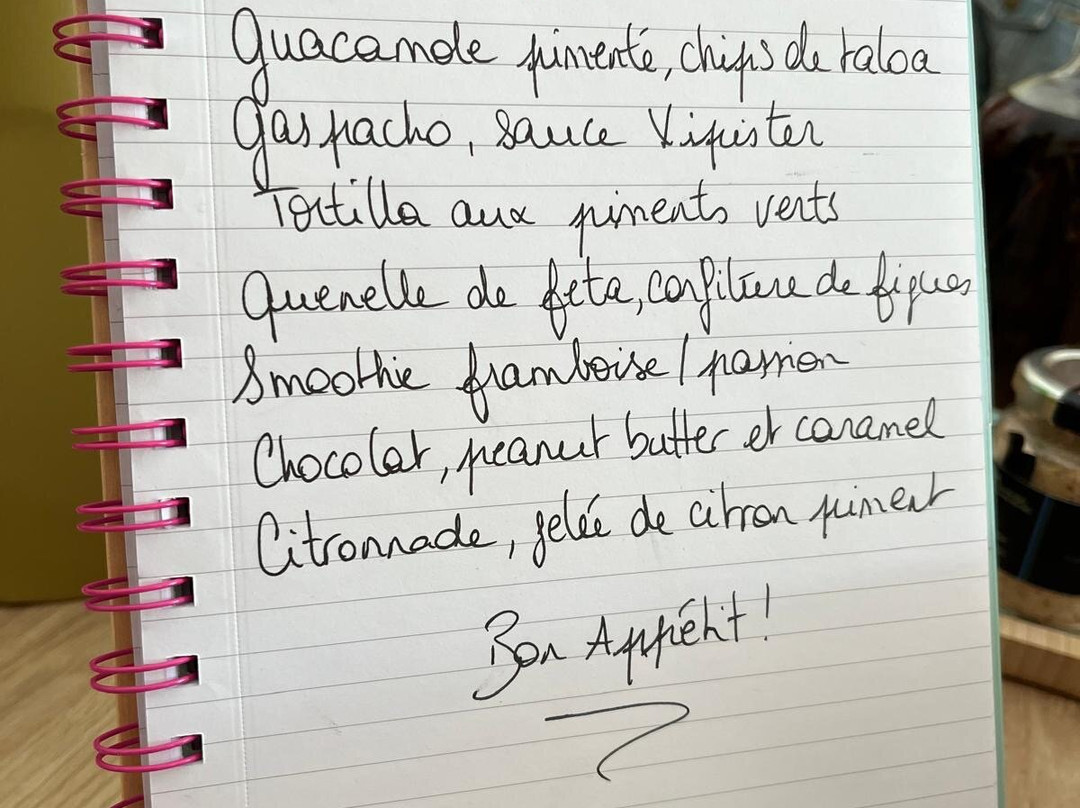 Guacamole pimenté, chips de taloa
Gaspacho, sauce Xipister
Tortilla aux piments verts
Quenelle de feta, confiture de figues
Smoothie framboise / passion
Chocolat, peanut butter et caramel
Citronnade, gelée de citron piment
Bon Appétit !